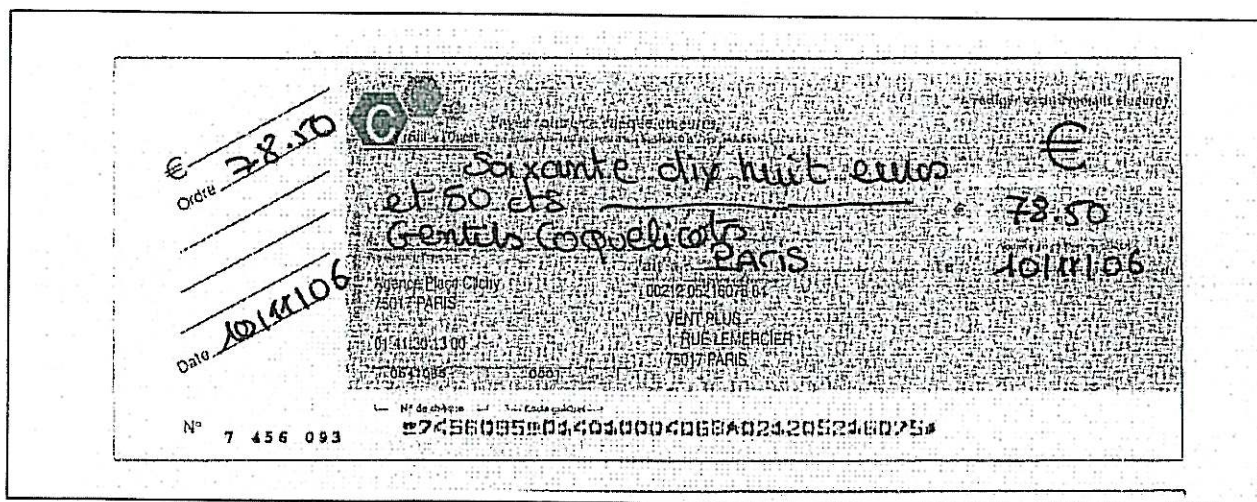 € 78.50
Ordre
Date 10/11/06
N° 7 456 093
C
Payez contre ce chèque en euros
€
Soixante dix huit euros
et 50 cts
78.50
Gentils Coquelicots
PARIS
10/11/06
Agence Place Clichy
75017 PARIS
01 41 30 13 00
VENT PLUS
1, RUE LEMERCIER
75017 PARIS
N° de chèque